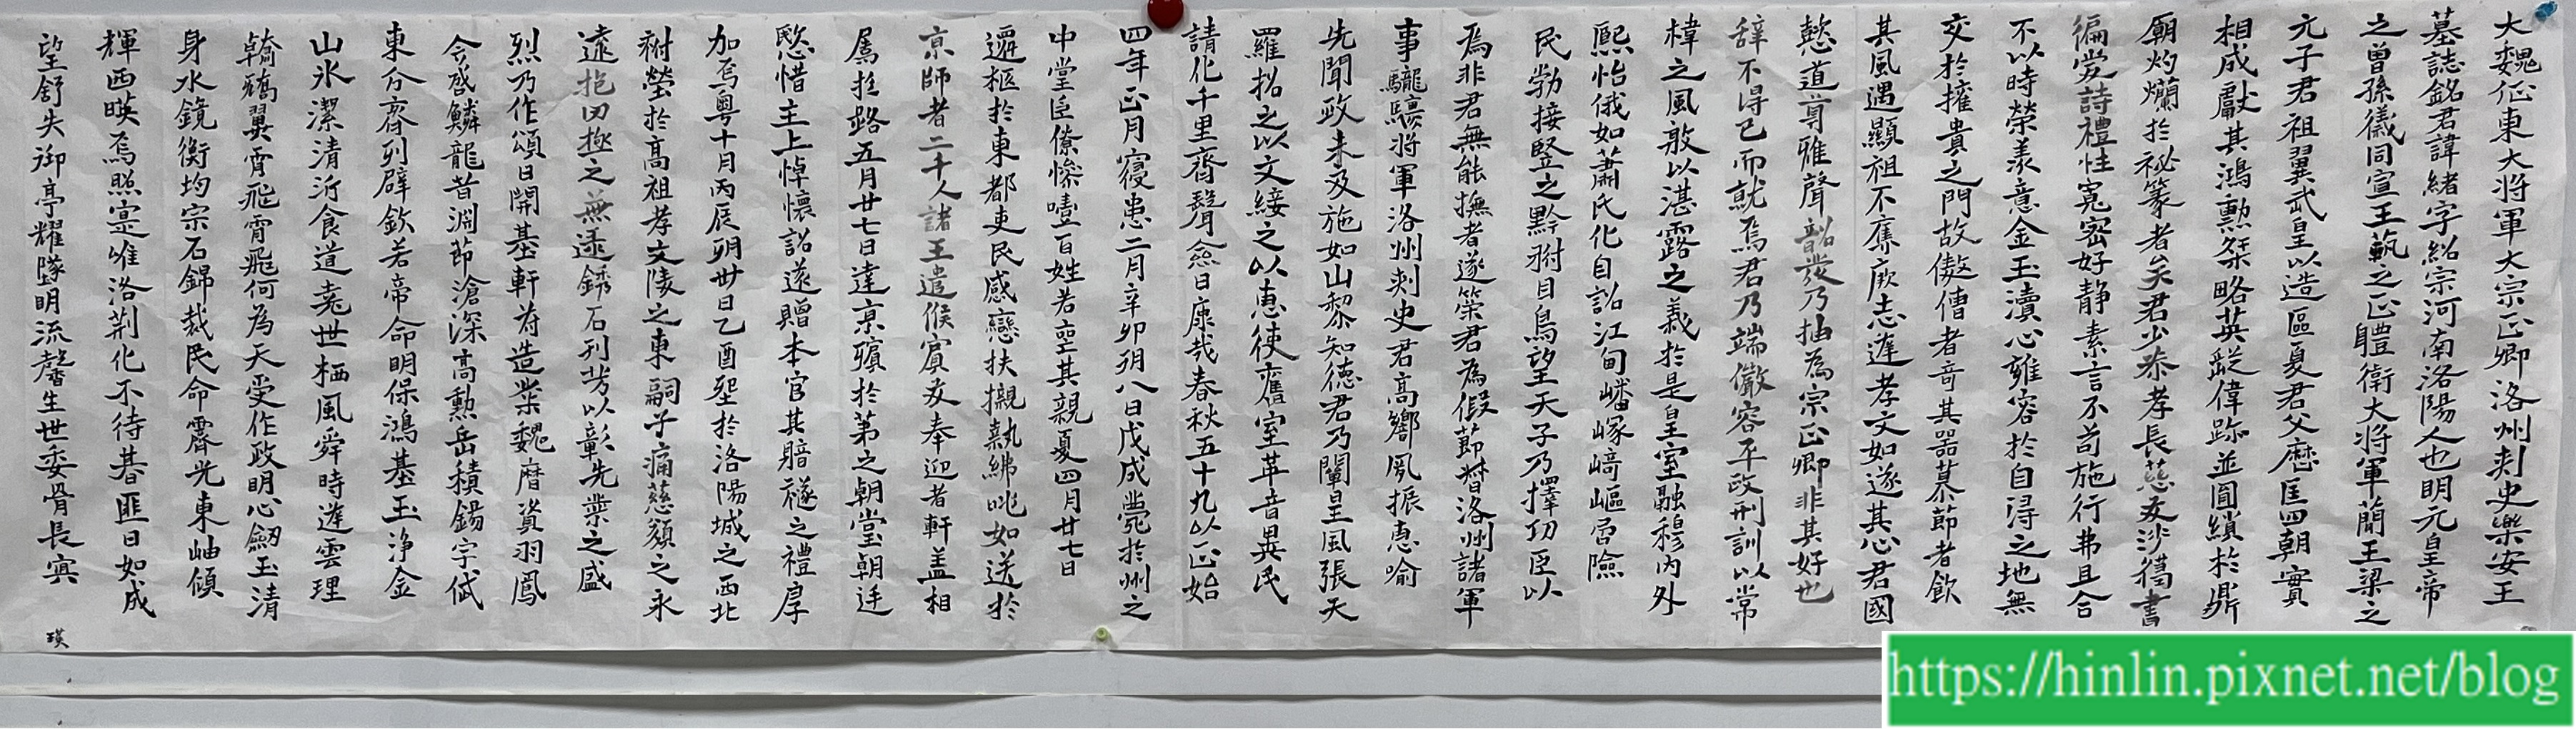 大魏征東大將軍大宗正卿洛州刺史樂安王
墓誌銘君諱緒字紹宗河南洛陽人也明元皇帝
之曾孫儀同宣王範之正體衛大將軍蕳王梁之
元子君祖翼武皇以造區夏君父歷匡四朝實
相成獻其鴻勳桀略英蹤偉跡並圖纘於鼎
廟灼爛於祕篆者矣君少恭孝長慈友涉獵書
徧愛詩禮性寬密好靜素言不苟施行弗且合
不以時榮羨意金玉瀆心雍容於自得之地無
交於擁貴之門故傲僧者奇其器慕節者飲
其風遇顯祖不豫廌厥志遂孝文如遂其心君國
懿道尊雅聲韶發乃抽為宗正卿非其好也
辭不得已而就焉君乃端儼容平政刑訓以常
棣之風敦以湛露之義於是皇室融穆內外
熙怡俄如蕭氏化自詔江甸嶓嶺崎嶇負險
民勃接豎之黔徃目鳥望天子乃擇功臣以
為非君無能撫者遂策君為假節督洛州諸軍
事驤驤將軍洛州刺史君高鄉夙振惠喻
先聞政未及施如山黎知德君乃闡皇風張天
羅招之以文綏之以惠使舊室革音異民
請化千里齊聲僉曰康哉春秋五十九以正始
四年正月寢患二月辛卯朔八日戊戌薨於州之
中堂臣僚慘噎百姓若喪其親夏四月廿七日
遷柩於東都吏民感戀扶櫬執紼咷如送於
京師者二千人諸王遣候賓友奉迎者軒蓋相
屬於路五月廿七日達京殯於第之朝堂朝廷
愍惜主上悼懷詔遂贈本官其賵襚之禮厚
加焉粵十月丙辰朔卅日乙酉塟於洛陽城之西北
祔塋於高祖孝文陵之東嗣子痛慈顏之永
遠抱罔極之無逮銹石刊芳以彰先業之盛
烈乃作頌曰開基軒符造業魏曆資羽鳳
今感鱗龍昔淵節滄深高勳岳積錫字氐
東分齊列辟欽若帝命明保鴻基玉淨金
山氷潔清沂食道堯世栖風舜時遊雲理
翰矯翼霄飛霄飛何為天受作政明心劒玉清
身水鏡衡均宗石錦裁民命霽光東岫傾
輝西暎焉照寔唯洛荆化不待朞匪日如成
望舒失御亭耀墜明流馨生世委骨長寘
瑛
https://hinlin.pixnet.net/blog